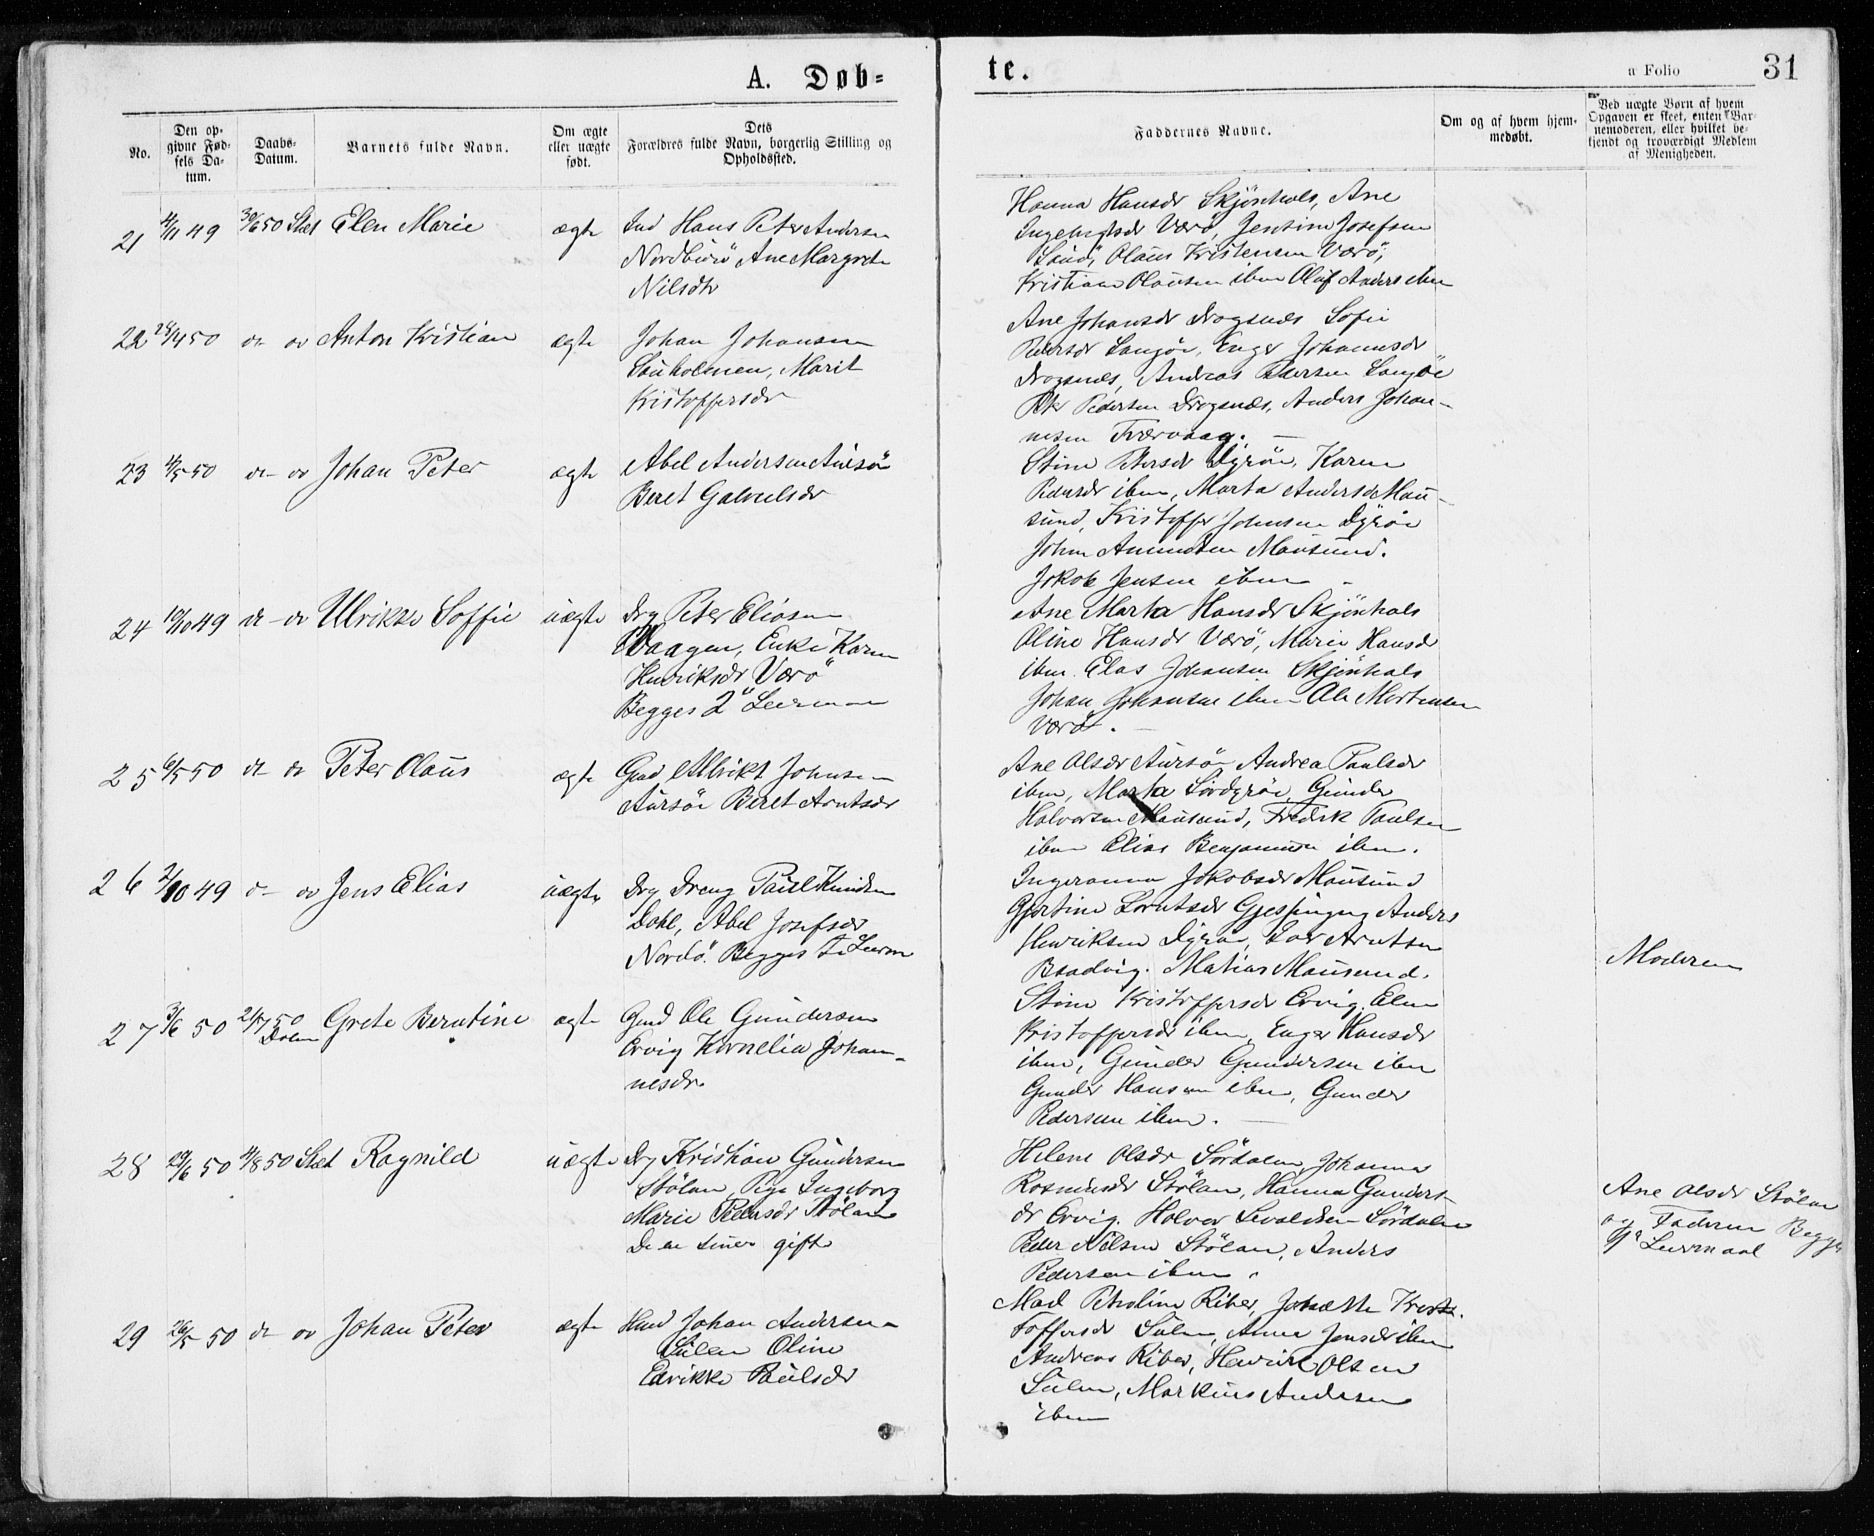 A. Døb-
te.
a Folio
31
No.
Den op-
givne Fød-
sels Da-
tum.
Daabs-
Datum.
Barnets fulde Navn.
Om ægte
eller uægte
født.
Dets
Forældres fulde Navn, borgerlig Stilling og
Opholdssted.
Faddernes Navne.
Om og af hvem hjem-
medøbt.
Ved uægte Børn af hvem
Opgaven er skeet, enten Bar-
nemoderen, eller hvilket be-
kjendt og troværdigt Medlem
af Menigheden.
21 4/11 49 30/6 50 Slet Elen Marie ægte Ind Hans Peter Andersen
Nordburö Ane Margrete
Nilsdtr
Hanna Hansdr Skjönhals, Ane
Ingebrigtsdr Værö, Jensine Josefsen
Olaus Kristensen Værö,
Kristian Olausen ibm Oluf Anders ibm
22 28/4 50 do do Anton Kristian ægte Johan Johansen
Sauholmen, Marit
Kristoffersdr
Ane Johansdr Drogsnæs Sofie
Pedersdr Langöe, Inger Johannesdr
Drogsnæs, Andreas Pedersen Langöe
Petr Pedersen Drogsnæs, Anders Johan-
nesen Tværvaag. -
23 4/5 50 do do Johan Peter ægte Abel Andersen Aursö
Beret Gabrielsdr
Stine Petersdr Dyröe, Karen
Pedersdr ibm, Marta Andersd Mau-
sund, Kristoffer Johnsen Dyröe
John Amundsen Mausund.
Jakob Jensen ibm -
24 10/10 49 do do Ulrikke Soffie uægte Drg Peter Eliasen
Vaagen, Enke Karen
Henriksdr Værö
Begges 2 Leierm
Ane Marta Hansdr Skjönhals
Oline Hansdr Værö, Marie Hansdr
ibm. Elas Johansen Skjönhals
Johan Johansen ibm Ole Mortensen
Værö. -
25 6/5 50 do do Peter Olaus ægte Gmd Albrikt Johnsen
Aursöe Beret Arntsdr
Ane Olsdr Aursöe Andrea Paulsdr
ibm, Marta Sördyröe, Gunder
Halvorsen Mausund, Fredrik Paulsen
ibm Elias Benjaminsen ibm.
26 2/10 49 do do Jens Elias uægte Drg Dreng Paul Knudsen
Dahl, Abel Josefsdr
Nordö. Begges 1e Leierm
Ingeranna Jakobsdr Mausund
Gjertine Lorntsdr Gjessingen Anders
Henriksen Dyröe, Lars Arntsen
Bradvig. Matias Mausund.
Moderen
27 3/6 50 21/7 50 Grete Berntine ægte Gmd Ole Gundersen
Dolm
Ervig Kornelia Johan-
nesdr.
Stine Kristoffersdr Ervig, Elen
Kristoffersdr ibm, Inger Hansdr
ibm, Gunder Gundersen ibm
Gunder Hansen ibm, Gunder
Pedersen ibm. -
28 29/6 50 11/8 50 Slet Ragnild uægte Drg Kristian Gundersen
Stölan, Pige Ingeborg
Marie Pedersdr Stölan
De ere siner gifte
Helene Olsdr Sördalen, Johanna
Rasmusdr Stölan, Hanna Gunders-
dr Ervig. Halvor Sevaldsen Sördalen
Peder Nilsen Stölan, Anders
Pedersen ibm.
Ane Olsdr Stölan
og Faderen Begges
1e Leiermaal
29 26/5 50 do do Johan Peter ægte Hmd Johan Andersen
Sulen Oline
Edvikke Paulsdr
Mad Petroline Riber, Josette Krist-
toffersdr Sulen, Anne Jensdr ibm
Andreas Riber, Henrik Olsen
Sulen, Markus Andersen
ibm